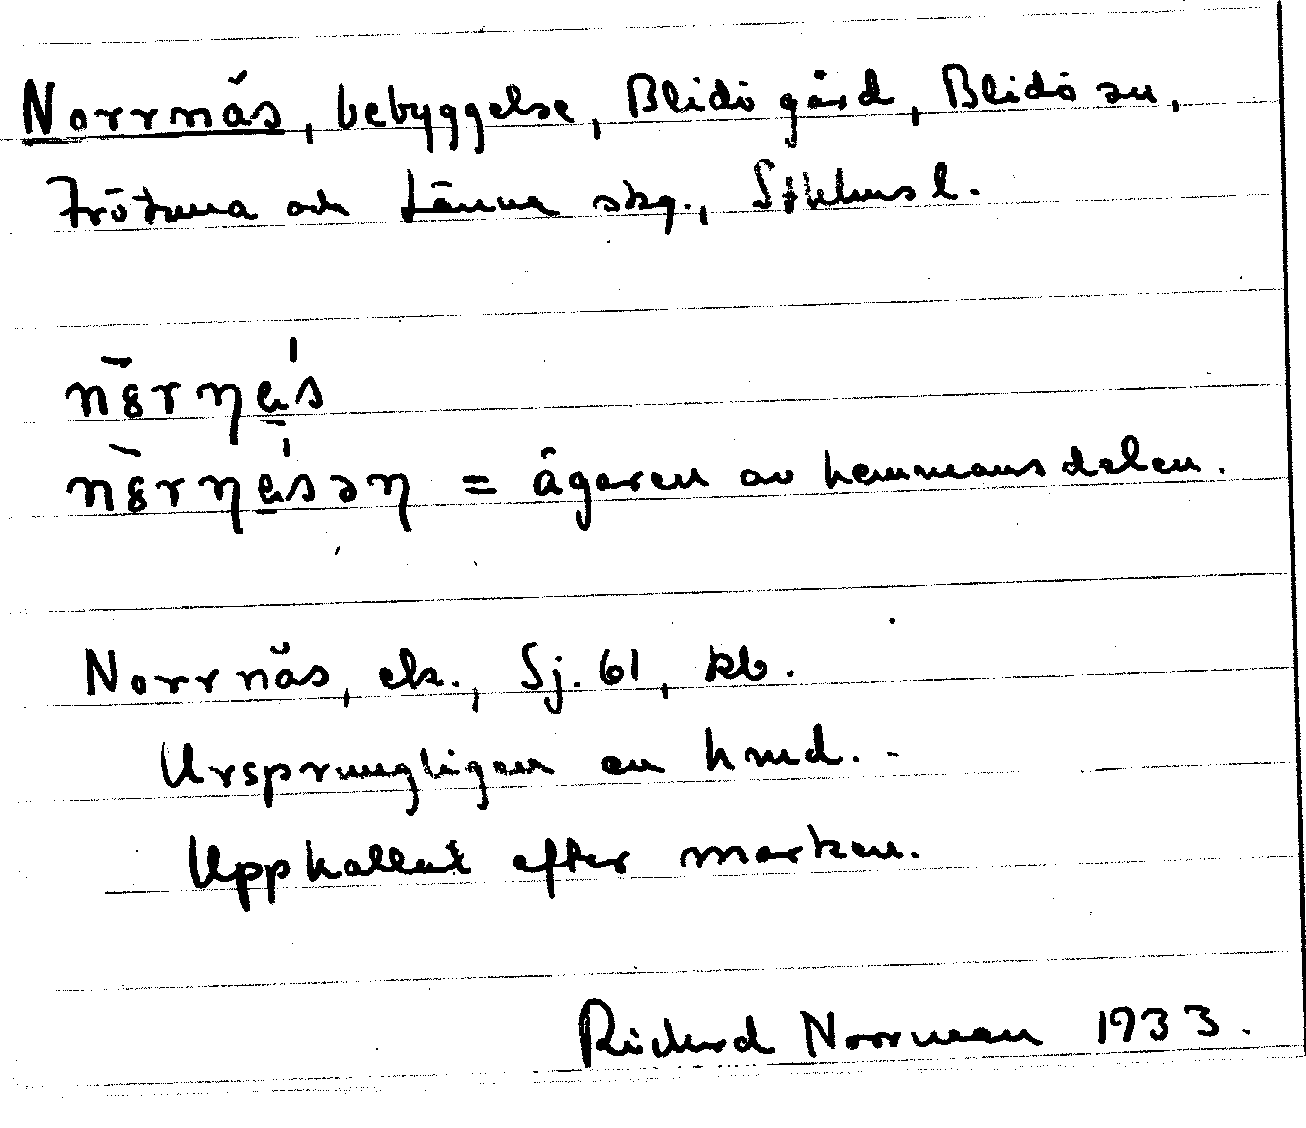 Norrnäs, bebyggelse, Blidö gård, Blidö sn,
Frötuna och Länna skg., Sthlms l.
= ägaren av hemmansdelen.
Norrnäs, ek., Sj. 61, kb.
Ursprungligen en hmd. -
Uppkallat efter marken.
Rickard Norrman 1933.